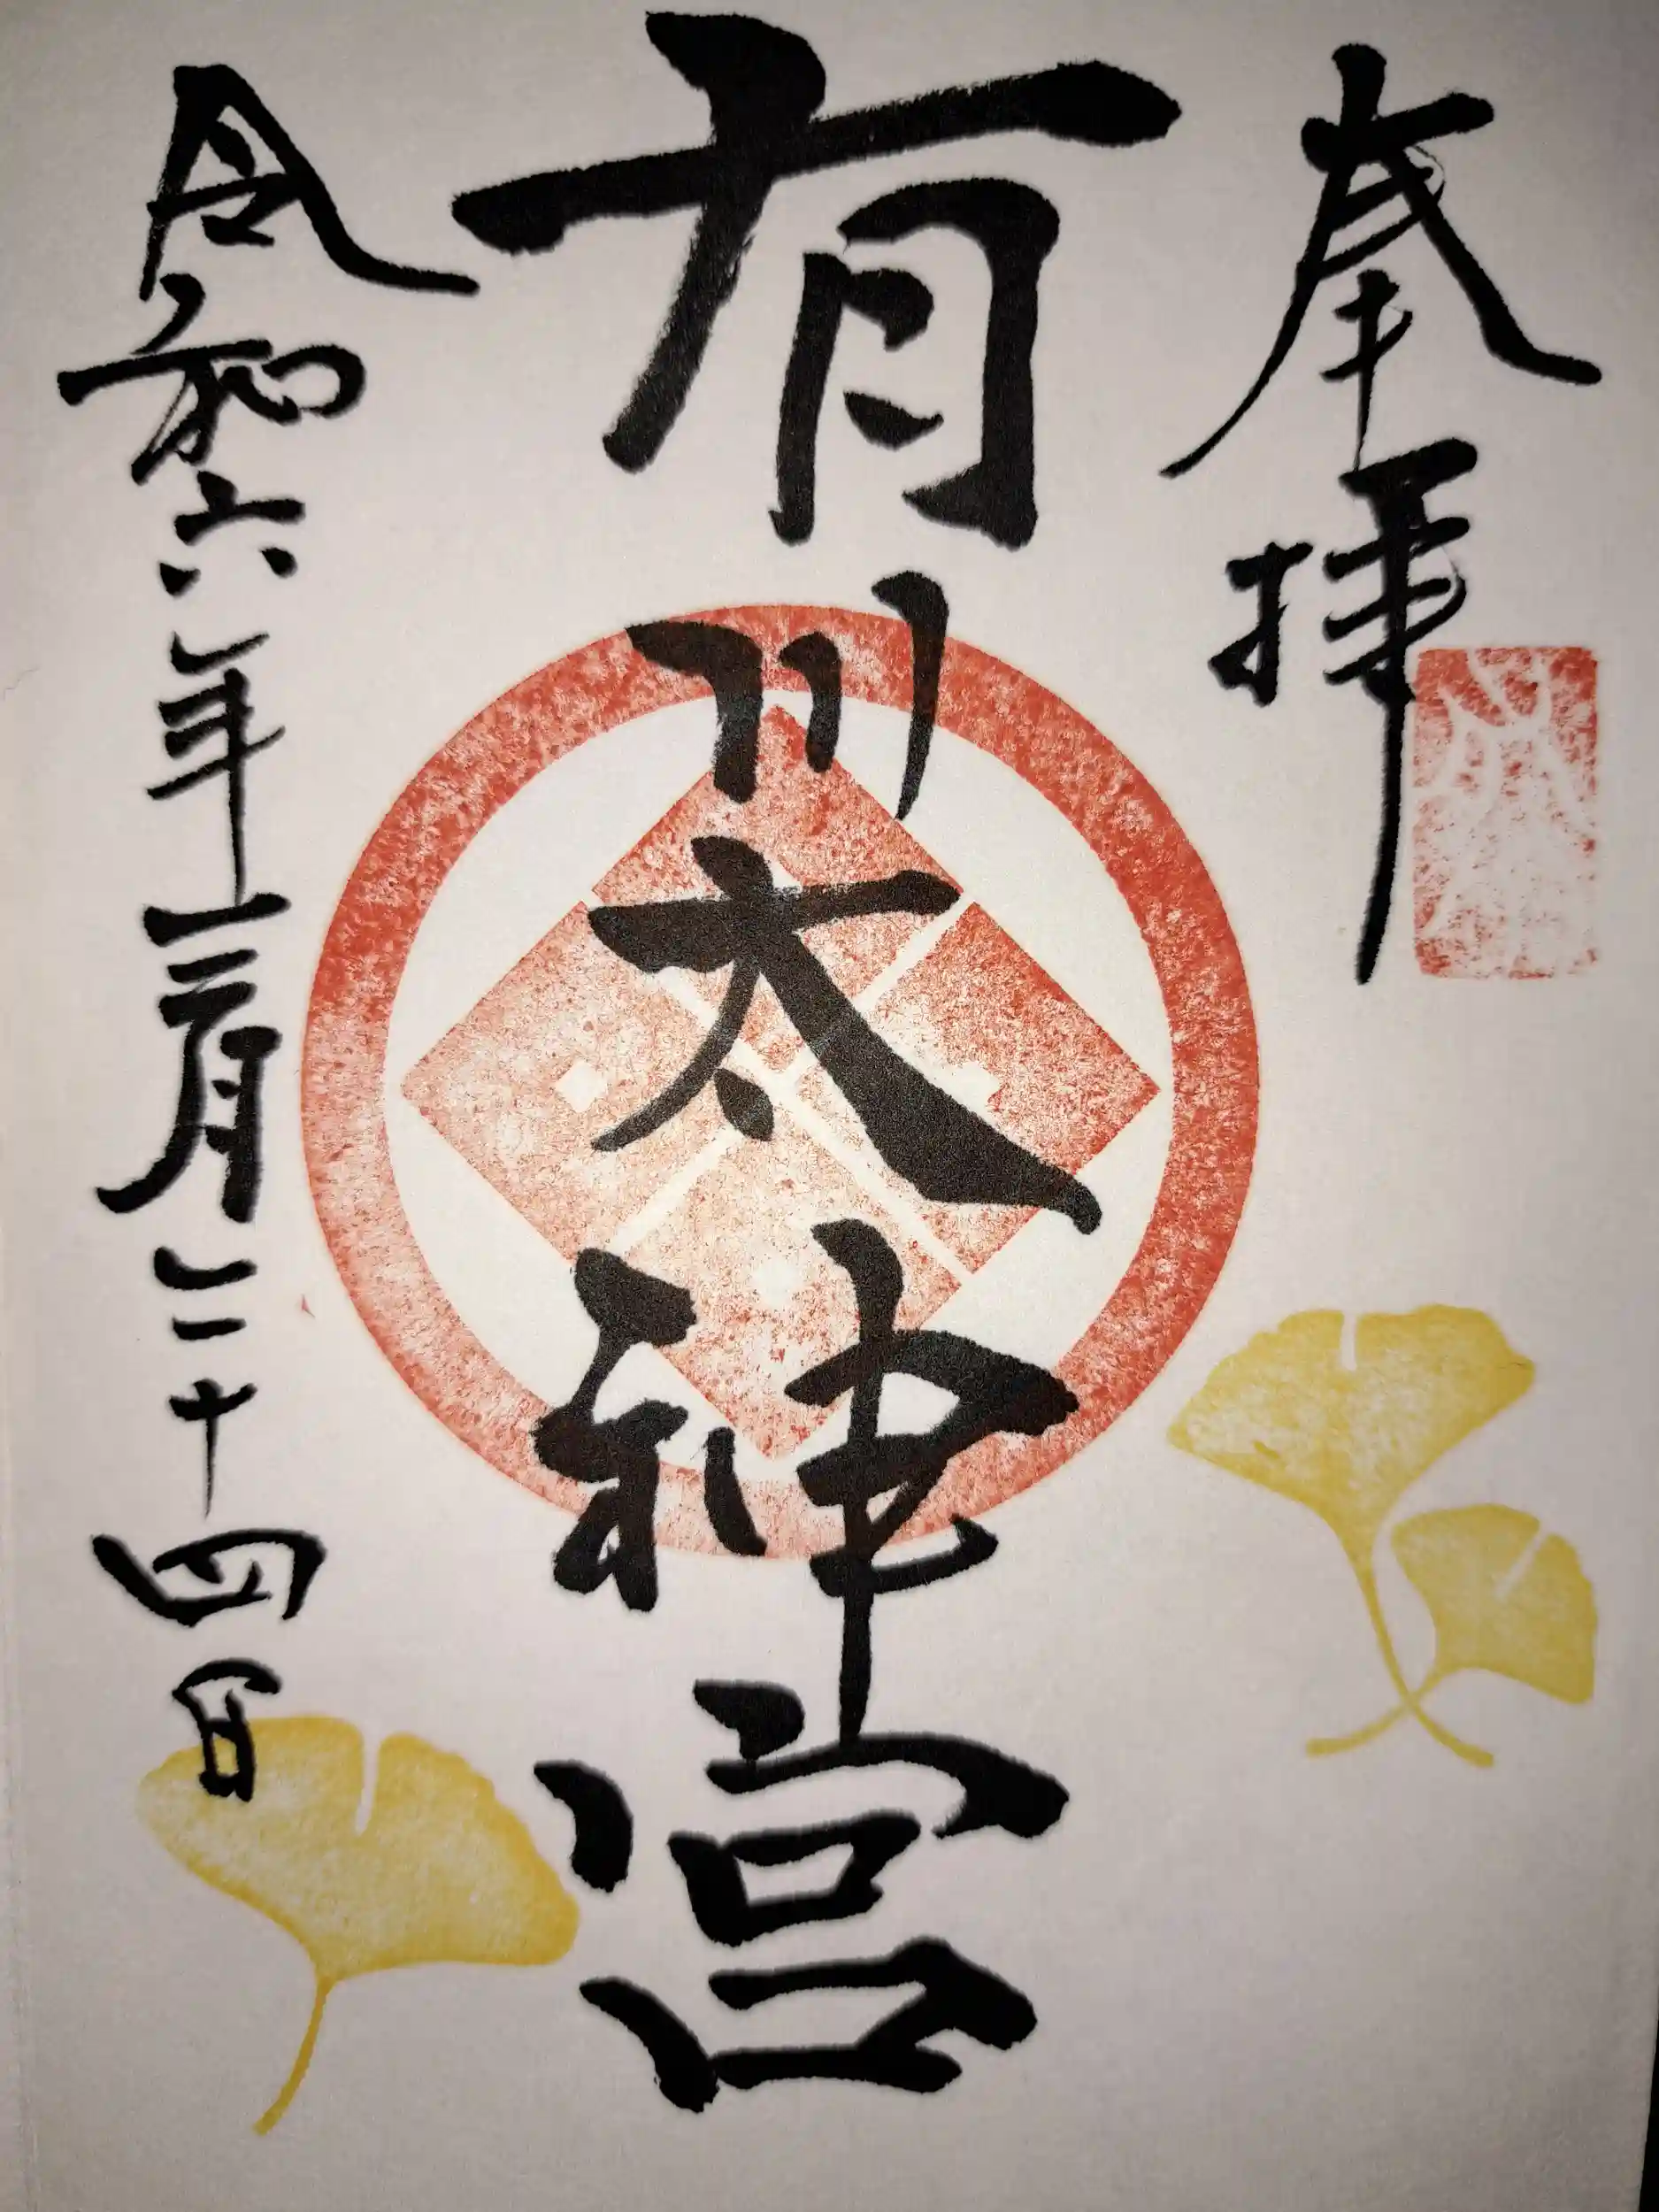 奉拝
有川太神宮
令和六年三月二十四日